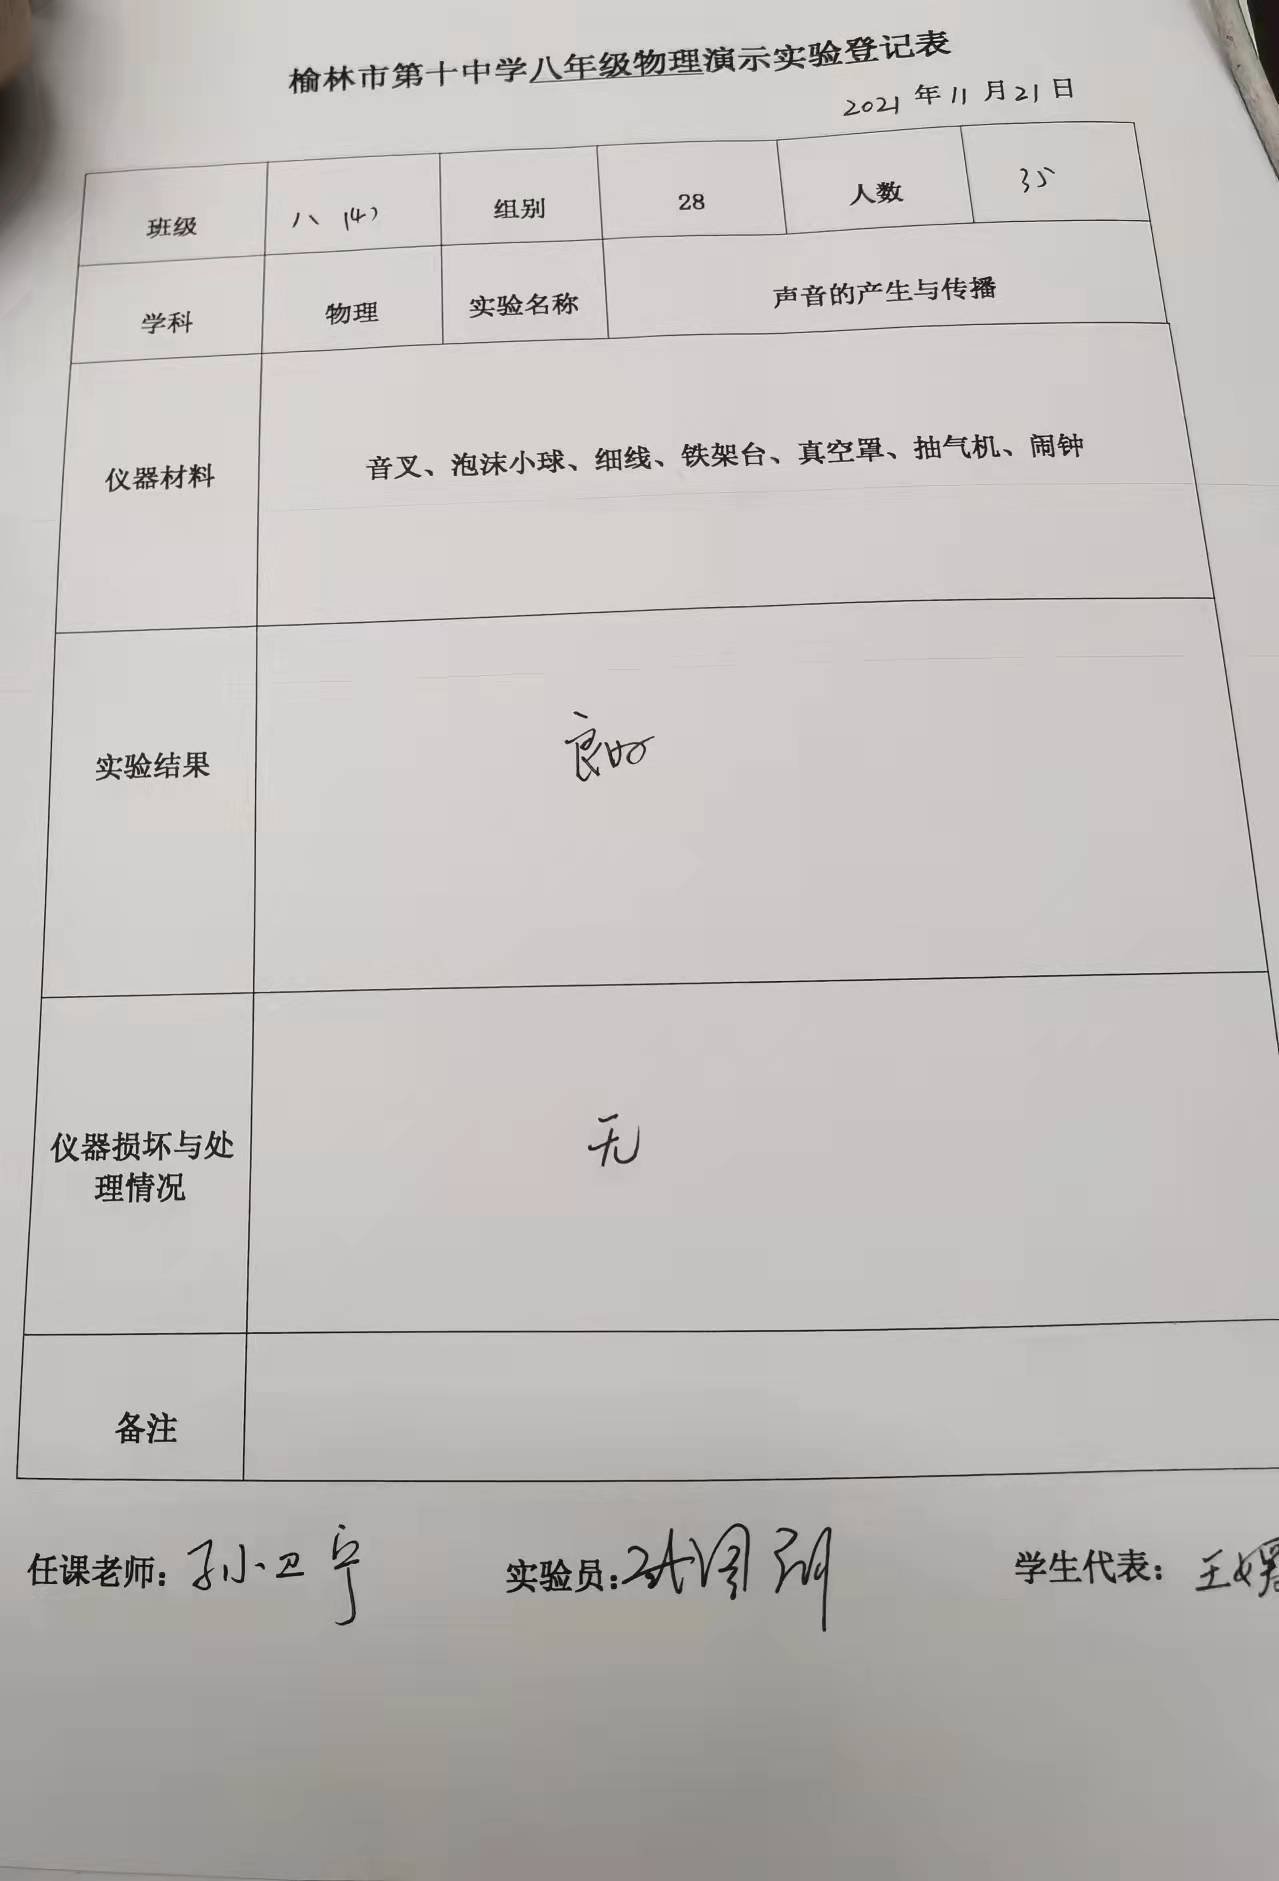 榆林市第十中学八年级物理演示实验登记表
2021 年 11 月 21 日
班级 八 (4) 组别 28 人数 35
学科 物理 实验名称 声音的产生与传播
仪器材料 音叉、泡沫小球、细线、铁架台、真空罩、抽气机、闹钟
实验结果 良好
仪器损坏与处
理情况 无
备注
任课老师: 孙卫宁 实验员: 学生代表: 王